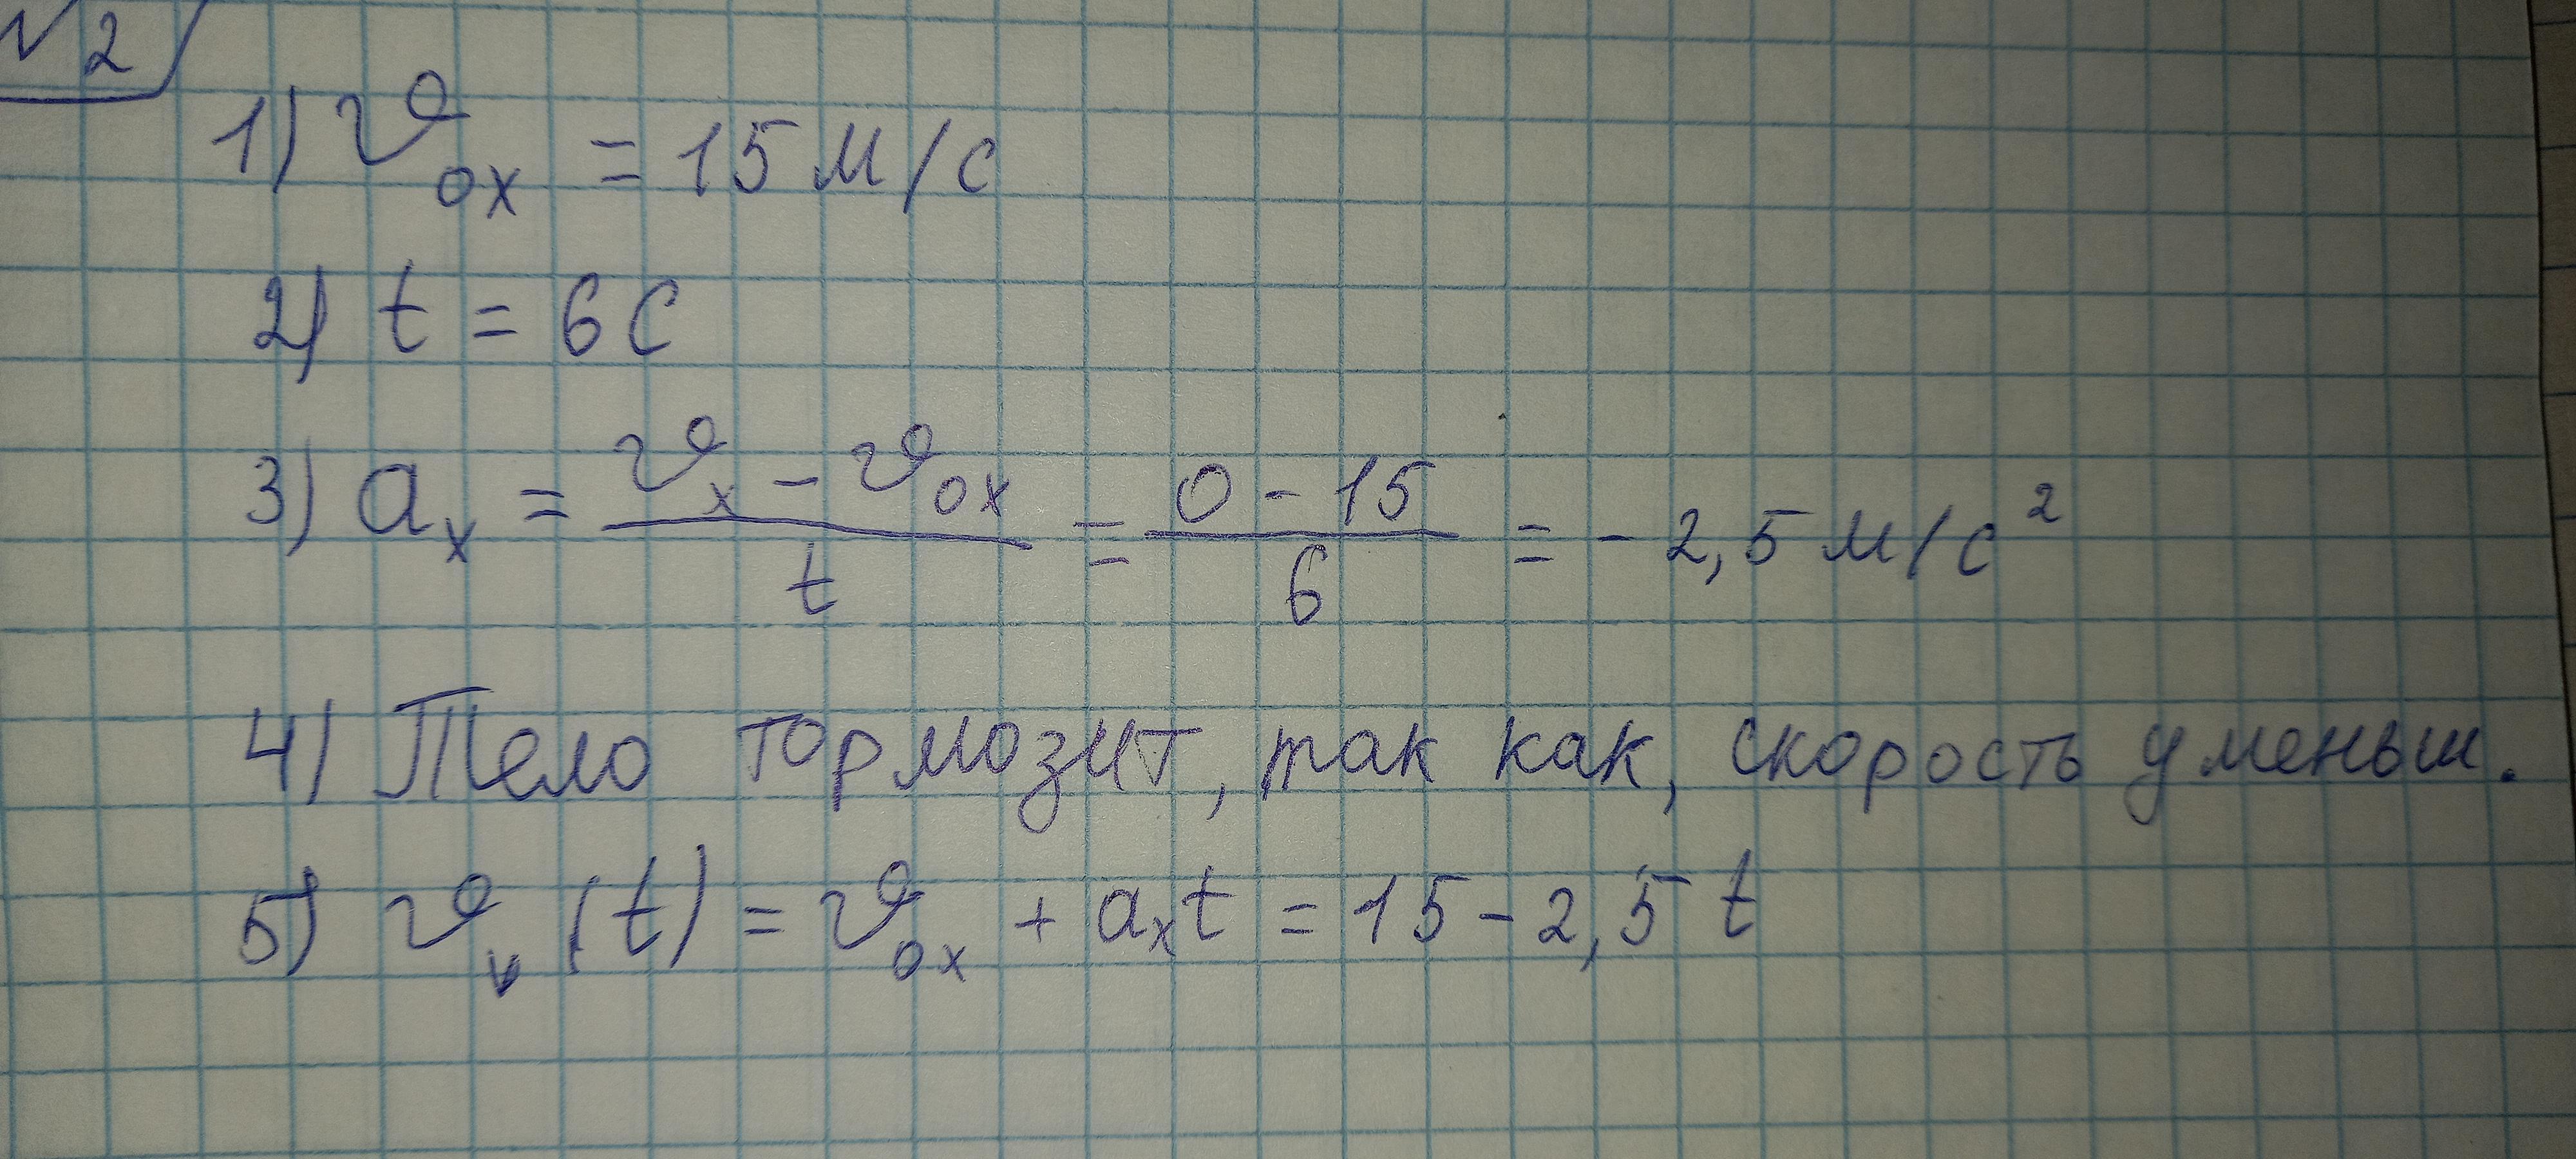 №2
1) υ₀ₓ = 15 м/с
2) t = 6 с
3) aₓ = (υₓ - υ₀ₓ)/t = (0 - 15)/6 = - 2,5 м/с²
4) Тело тормозит, так как, скорость уменьш.
5) υₓ(t) = υ₀ₓ + aₓt = 15 - 2,5 t